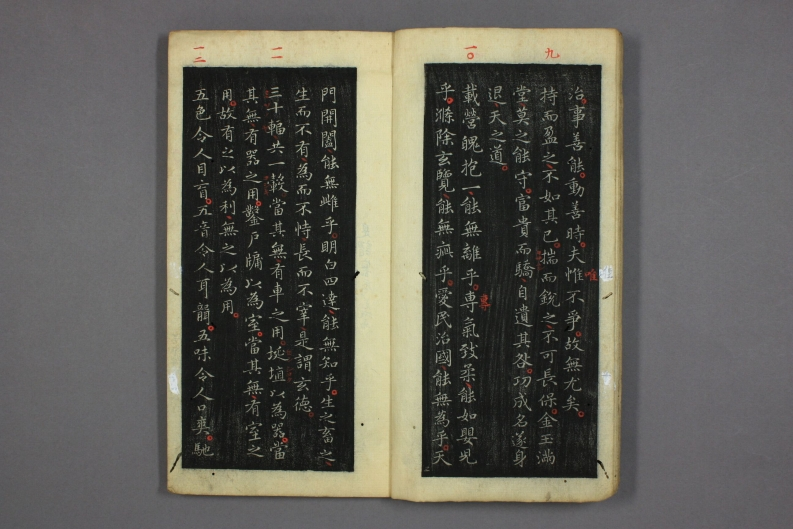 九
治事善能動善時夫惟不爭故無尤矣
唯
持而盈之不如其已揣而銳之不可長保金玉滿
堂莫之能守富貴而驕自遺其咎功成名遂身
退天之道
一〇
載營魄抱一能無離乎專氣致柔能如嬰兒
乎滌除玄覽能無疵乎愛民治國能無為乎天
門開闔能無雌乎明白四達能無知乎生之畜之
生而不有為而不恃長而不宰是謂玄德
一一
三十輻共一轂當其無有車之用埏埴以為器當
其無有器之用鑿戶牖以為室當其無有室之
用故有之以為利無之以為用
一二
五色令人目盲五音令人耳聾五味令人口爽馳